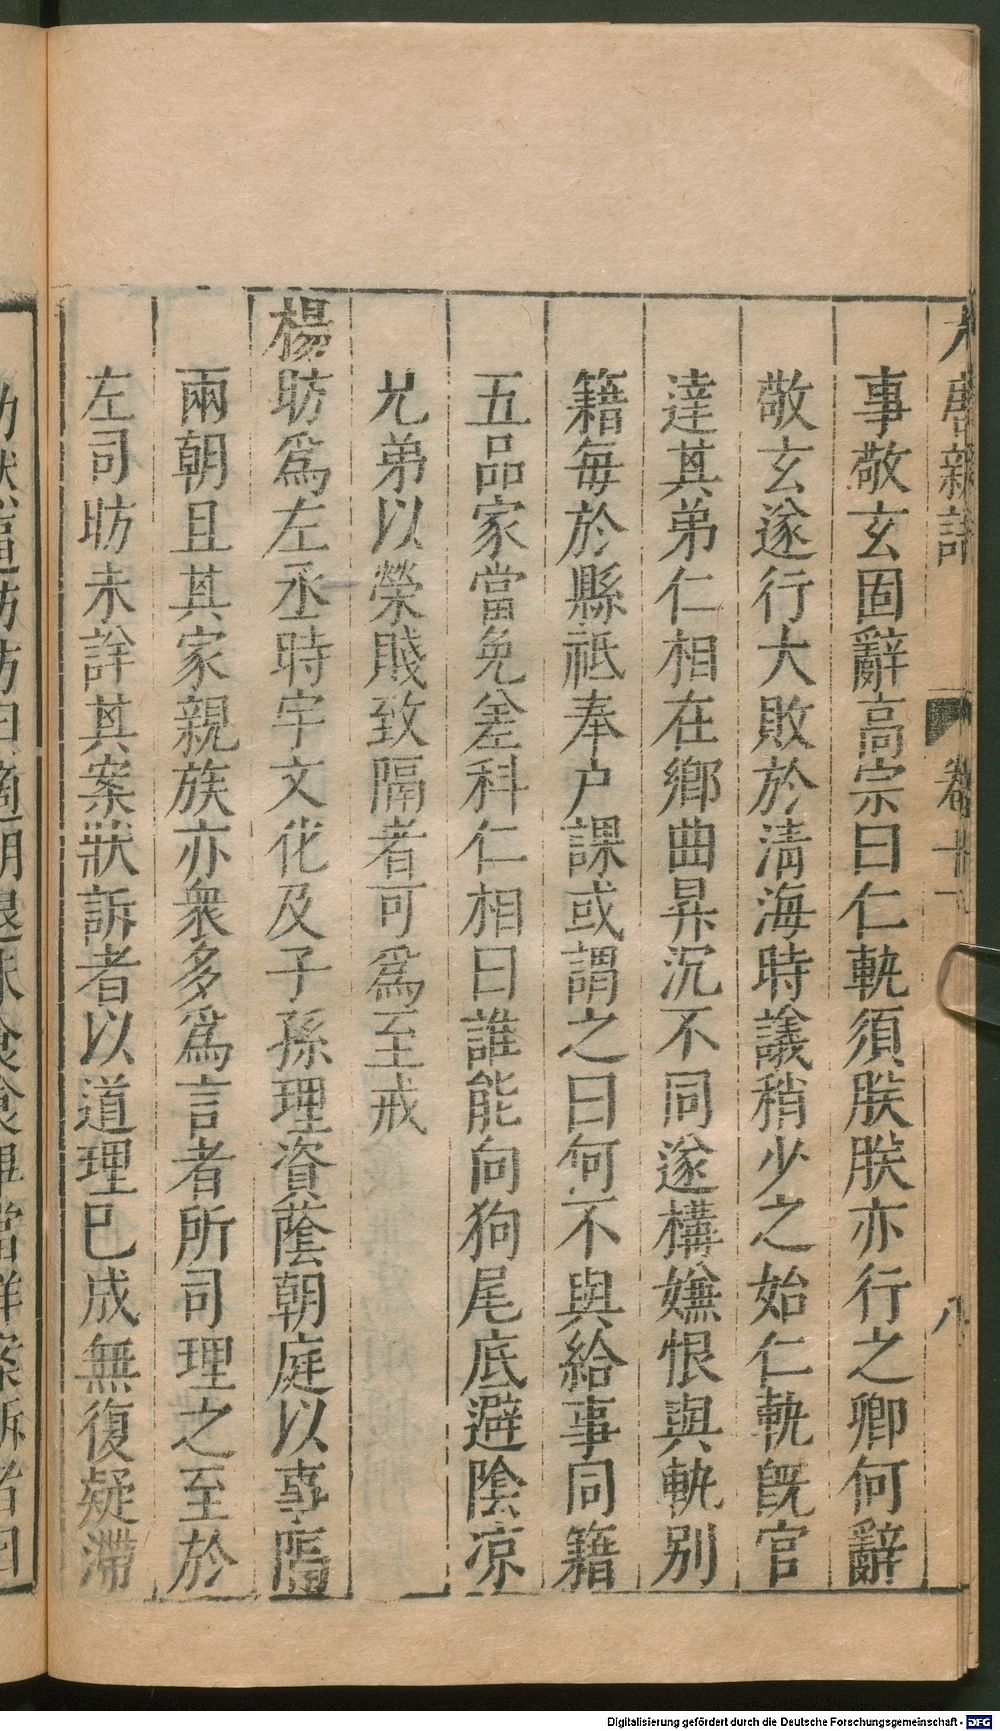 大唐新語 卷十一 八
事敬玄固辭高宗曰仁軌須朕朕亦行之卿何辭
敬玄遂行大敗於清海時議稍少之始仁軌既官
達其弟仁相在鄉曲昇沉不同遂構嫌恨與軌別
籍每於縣祗奉户課或謂之曰何不與給事同籍
五品家當免差科仁相曰誰能向狗尾底避陰凉
兄弟以榮賤致隔者可爲至戒
楊昉爲左丞時宇文化及子孫理資蔭朝庭以事隔
兩朝且其家親族亦衆多爲言者所司理之至於
左司昉未詳其案狀訴者以道理已成無復疑滯
Digitalisierung gefördert durch die Deutsche Forschungsgemeinschaft - DFG